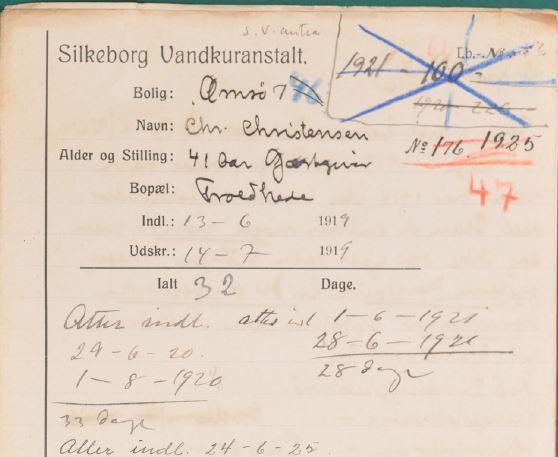 S. V. antra
Silkeborg Vandkuranstalt.
Lb.-No
1921 - 100 -
Bolig: Ømsø 7
46
Navn: Chr. Christensen
No 176 1925
Alder og Stilling: 41 Aar Gæstgiver
47
Bopæl: Troldhede
Indl.: 13 - 6 1919
Udskr.: 14 - 7 1919
Ialt 32 Dage.
Atter indl. atter id 1 - 6 - 1921
29 - 6 - 20. 28 - 6 - 1921
1 - 8 - 1920 28 dage
33 dage
Atter indl. 24 - 6 - 25.